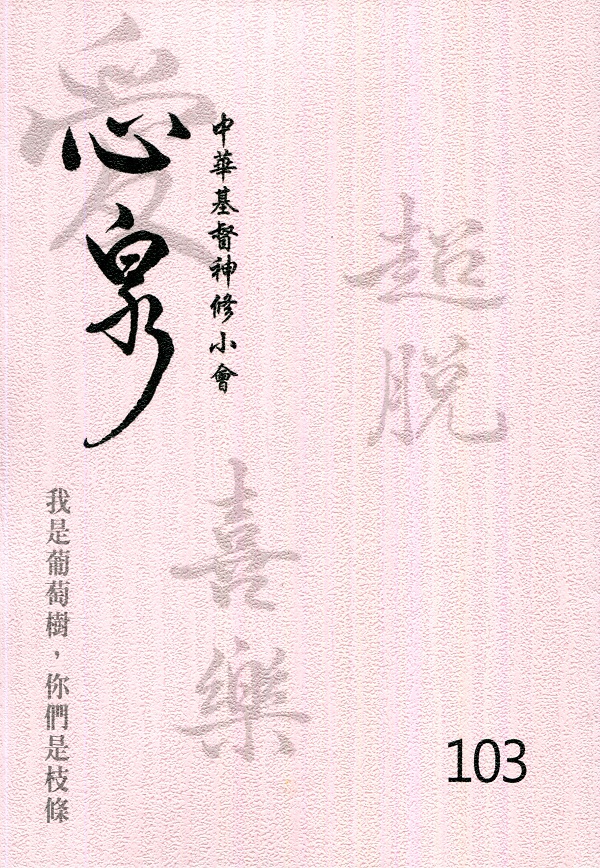 愛
心泉
中華基督神修小會
超脫
喜樂
我是葡萄樹，你們是枝條
103